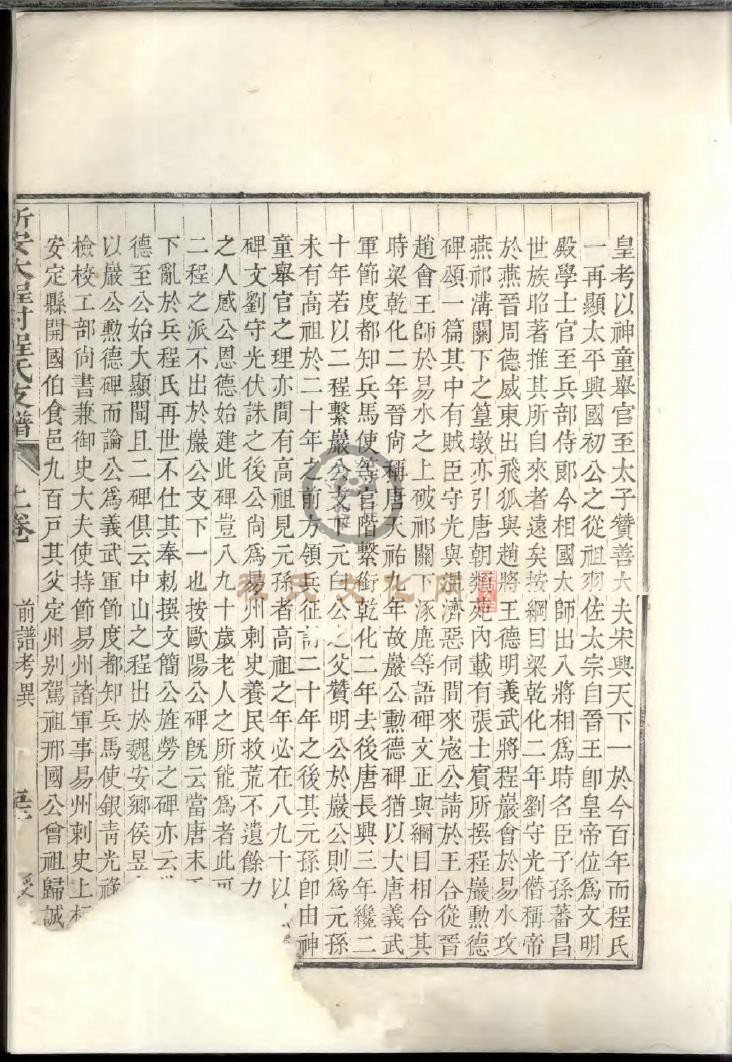 皇考以神童舉官至太子贊善大夫宋興天下一於今百年而程氏
一再顯太平興國初公之從祖羽佐太宗自晉王卽皇帝位爲文明
殿學士官至兵部侍郎今相國大師出入將相爲時名臣子孫蕃昌
世族昭著推其所自來者遠矣按綱目梁乾化二年劉守光僭稱帝
於燕晉周德威東出飛狐與趙將王德明義武將程巖會於易水攻
燕祁溝關下之篁墩亦引唐朝類苑內載有張士賓所撰程巖勲德
碑頌一篇其中有賊臣守光與濟惡伺間來寇公請於王合從晉
趙會王師於易水之上破祁關下涿鹿等語碑文正與綱目相合其
時梁乾化二年晉尙稱唐天祐九年故巖公勲德碑猶以大唐義武
軍節度都知兵馬使等官階繫銜乾化二年去後唐長興三年纔二
十年若以二程繫巖公支下元白公之父贊明公於巖公則爲元孫
未有高祖於二十年之前方領兵征討二十年之後其元孫卽由神
童舉官之理亦間有高祖見元孫者高祖之年必在八九十以
碑文劉守光伏誅之後公尙爲易州刺史養民救荒不遺餘力
之人感公恩德始建此碑豈八九十歲老人之所能爲者此可
二程之派不出於巖公支下一也按歐陽公碑旣云當唐末
下亂於兵程氏再世不仕其奉勅撰文簡公旌勞之碑亦云
德至公始大顯聞且二碑俱云中山之程出於魏安鄉侯昱
以巖公勲德碑而論公爲義武軍節度都知兵馬使銀靑光祿
檢校工部尙書兼御史大夫使持節易州諸軍事易州刺史上柱
安定縣開國伯食邑九百戸其父定州別駕祖邢國公曾祖歸誠
新安大程村程氏支譜 上卷 前譜考異
程氏文化网